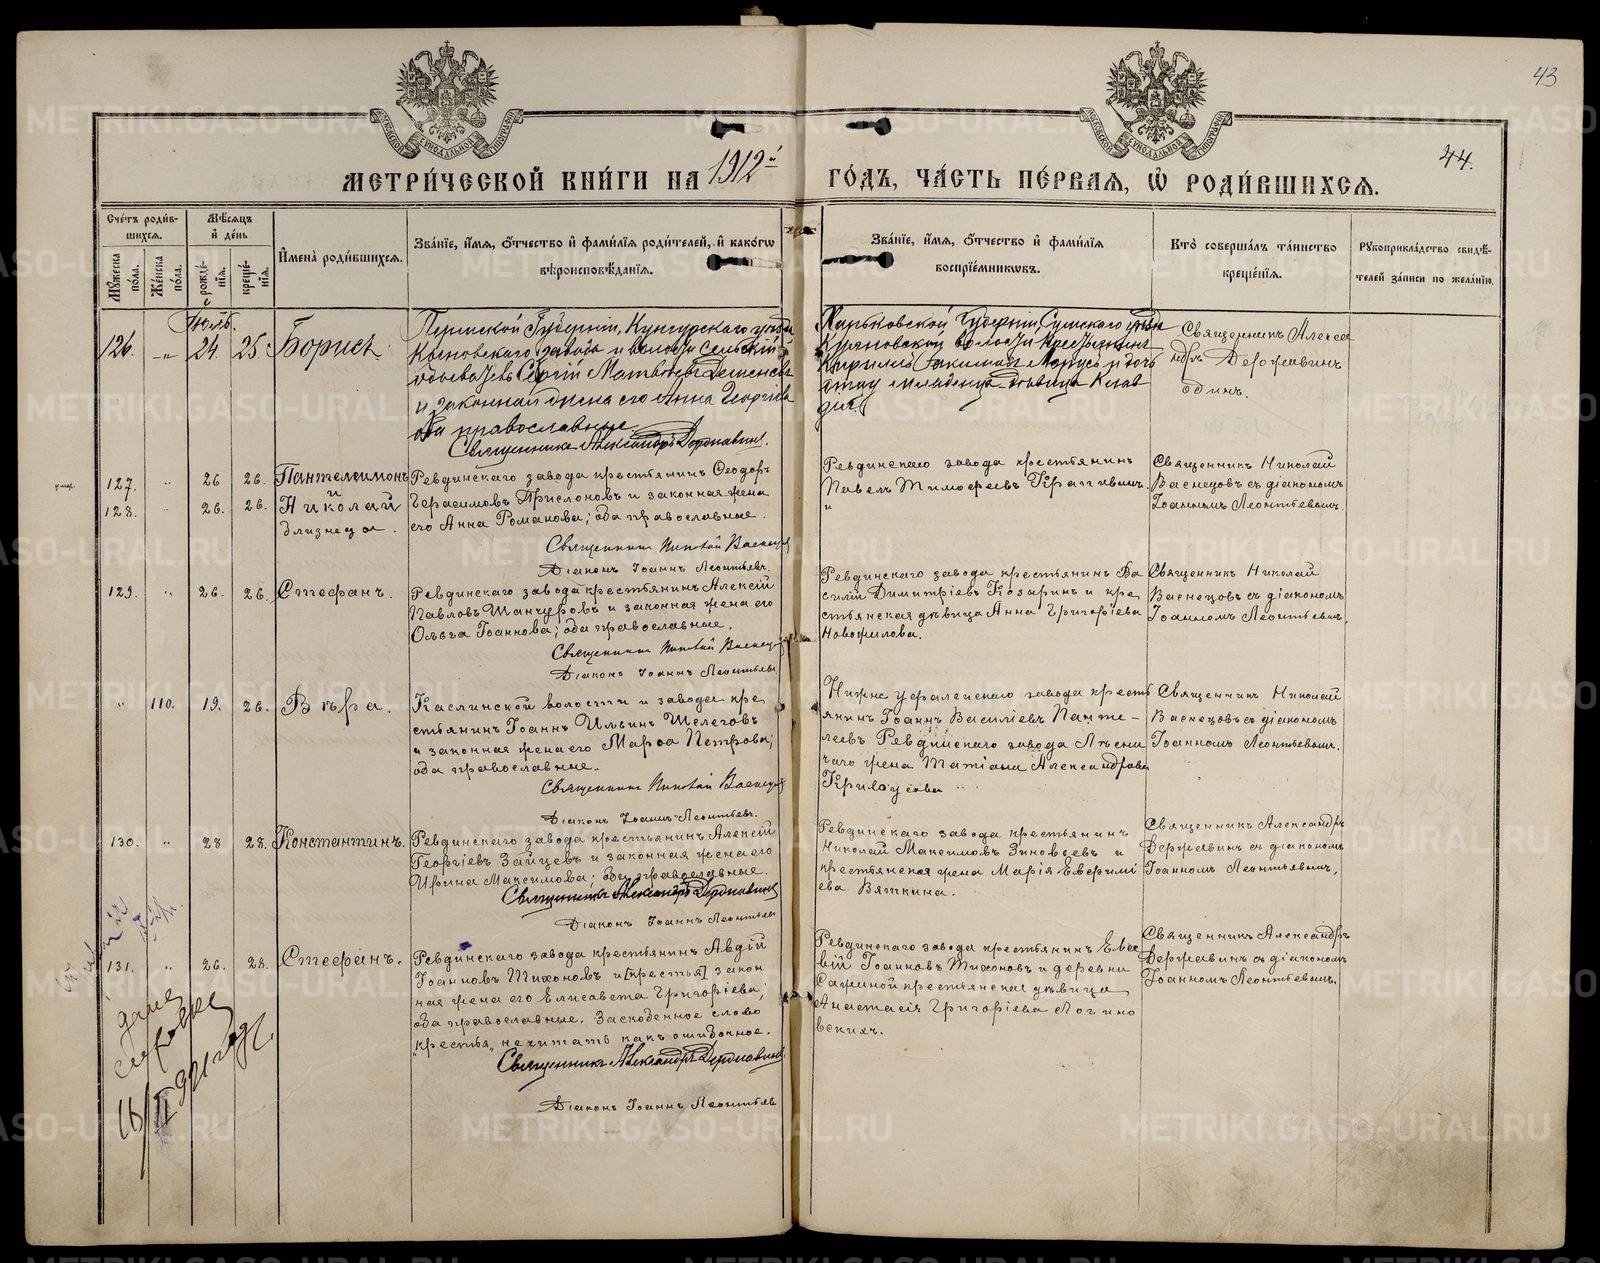 43
44.
МЕТРИ́ЧЕСКОЙ КНИ́ГИ НА 1912й ГО́ДЪ, ЧА́СТЬ ПЕ́РВАЯ, Ѡ РОДИ́ВШИХСЯ.
Сче́тъ роди́вшихся.
Мꙋжеска по́ла.
Же́нска по́ла.
Мѣ́сяцъ и̑ де́нь
рожде́нїя.
креще́нїя.
И҆мена̀ роди́вшихся.
Зва́нїе, и҆́мя, ѻ҆́тчество и҆ фами́лїя роди́телей, и҆ како́гѡ
вѣроисповѣ́данїя.
Зва́нїе, и҆́мя, ѻ҆́тчество и҆ фами́лїя
воспрїе́мникѡвъ.
Кто̀ соверша́лъ та́инство
креще́нїя.
Рꙋкоприкла́дство свидѣ́-
телей за́писи по жела́нїю.
Іюль.
126. -„- 24 25 Борисъ
Пермской Губерніи, Кунгурскаго уѣзда
завода и волости сельскій
обыватель Сергій Матвѣевъ
и законная жена его Анна Георгіева
оба православные.
Священникъ Александръ Державинъ.
Харьковской Губерніи, Сумскаго уѣзда
волости крестьянинъ
дѣвица Клав
дія.
Священникъ Алекса
ндръ Державинъ
одинъ.
127. „ 26 26. Пантелеимонъ
и
128. „ 26. 26. Николай
близнецы.
Ревдинскаго завода крестьянинъ Ѳеодоръ
Герасимовъ Прислоновъ и законная жена
его Анна Романова; оба православные.
Священникъ Николай Васнецов
Діаконъ Іоаннъ Леонтьевъ.
Ревдинскаго завода крестьянинъ
Павелъ Тимоѳеевъ Крапивинъ
и
Священникъ Николай
Васнецовъ съ діакономъ
Іоанномъ Леонтьевымъ.
129. „ 26. 26. Стефанъ.
Ревдинскаго завода крестьянинъ Алексій
Павловъ Шанцуровъ и законная жена его
Ольга Іоаннова; оба православные.
Священникъ Николай Васнецов
Діаконъ Іоаннъ Леонтьевъ
Ревдинскаго завода крестьянинъ Ва
силій Димитріевъ Козаринъ и кре
стьянская дѣвица Анна Григоріева
Новожилова.
Священникъ Николай
Васнецовъ съ діакономъ
Іоанномъ Леонтьевымъ.
„ 110. 19. 26. Вѣра.
Каслинской волости и завода кре
стьянинъ Іоаннъ Ильинъ Шелеговъ
и законная жена его Марѳа Петрова;
оба православные.
Священникъ Николай Васнецов
Діаконъ Іоаннъ Леонтьевъ.
Нижне Уфалейскаго завода крест
янинъ Іоаннъ Василіевъ Панте-
леевъ Ревдинскаго завода Лѣсни
чаго жена Татіана Александрова
Криво
Священникъ Николай
Васнецовъ съ діакономъ
Іоанномъ Леонтьевымъ.
130. „ 28 28. Константинъ.
Ревдинскаго завода крестьянинъ Алексій
Георгіевъ Зайцевъ и законная жена его
Ирина Максимова; оба православные.
Священникъ Александръ Державинъ
Діаконъ Іоаннъ Леонтьевъ
Ревдинскаго завода крестьянинъ
Николай Максимовъ Зиновьевъ и
крестьянская жена Марія Евѳимі
ева Вяткина.
Священникъ Александръ
Державинъ съ діакономъ
Іоанномъ Леонтьевымъ.
131. „ 26. 28. Стефанъ.
Ревдинскаго завода крестьянинъ Авдій
Іоанновъ Тихоновъ и [крестья] закон
ная жена его Елисавета Григоріева;
оба православные. Заскобенное слово
„крестья„ нечитать какъ ошибочное.
Священникъ Александръ Державинъ
Діаконъ Іоаннъ Леонтьев
Ревдинскаго завода крестьянинъ Евсе
вій Іоанновъ Тихоновъ и деревни
Сажиной крестьянская дѣвица
Анастасія Григоріева Логино
вскихъ.
Священникъ Александръ
Державинъ съ діакономъ
Іоанномъ Леонтьевымъ.
дана
справка
16/II 921 года
METRIKI.GASO-URAL.RU